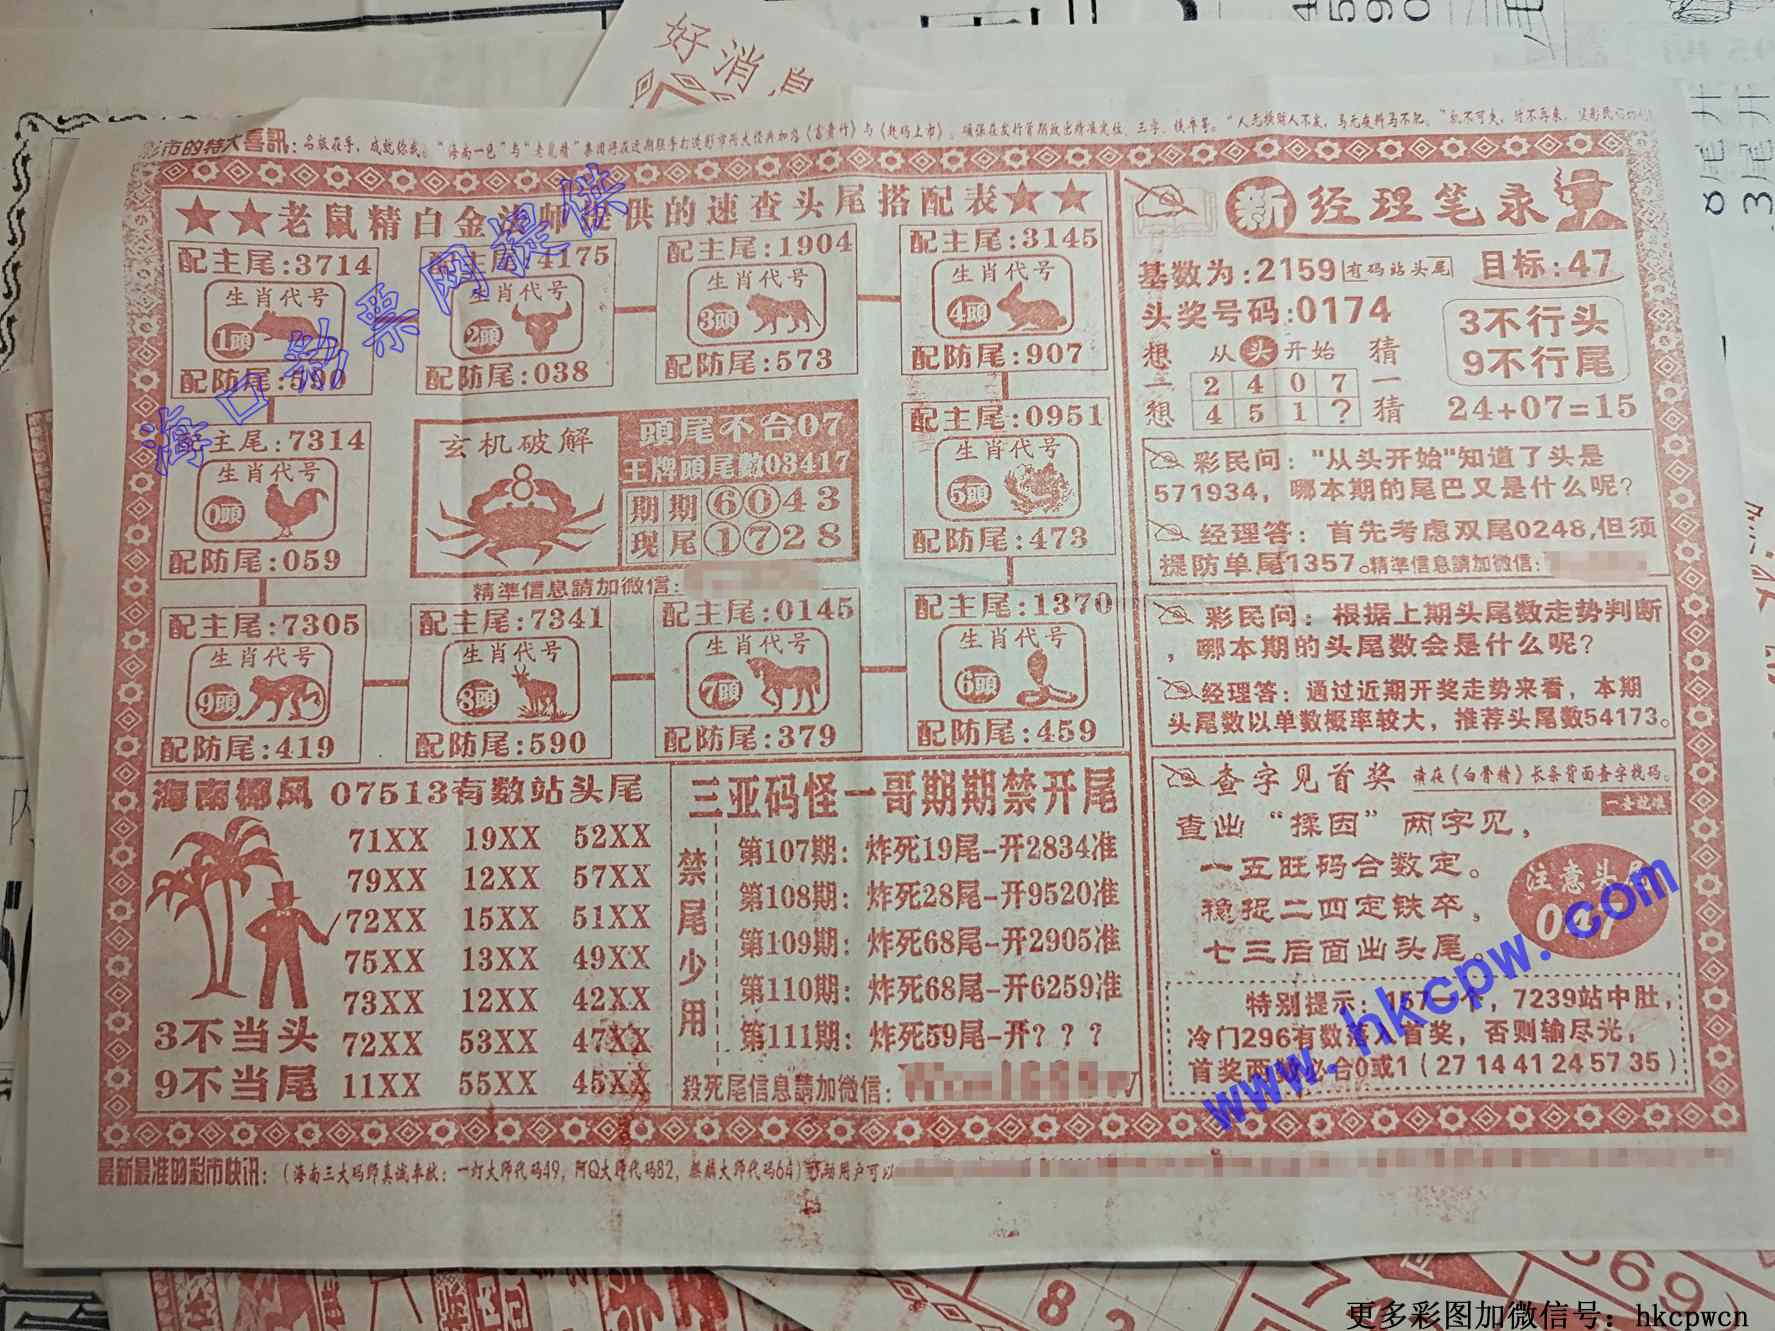 好消息
彩市的特大喜訊:
★★老鼠精白金法师提供的速查头尾搭配表★★
配主尾:3714
生肖代号
1頭
配防尾:590
配主尾:4175
生肖代号
2頭
配防尾:038
配主尾:1904
生肖代号
3頭
配防尾:573
配主尾:3145
生肖代号
4頭
配防尾:907
配主尾:7314
生肖代号
0頭
配防尾:059
玄机破解
8
頭尾不合07
王牌頭尾數03417
期期⑥⓪43
现尾①⑦28
配主尾:0951
生肖代号
5頭
配防尾:473
精準信息請加微信:
配主尾:7305
生肖代号
9頭
配防尾:419
配主尾:7341
生肖代号
8頭
配防尾:590
配主尾:0145
生肖代号
7頭
配防尾:379
配主尾:1370
生肖代号
6頭
配防尾:459
海南椰风 07513有数站头尾
71XX 19XX 52XX
79XX 12XX 57XX
72XX 15XX 51XX
75XX 13XX 49XX
73XX 12XX 42XX
72XX 53XX 47XX
11XX 55XX 45XX
3不当头
9不当尾
三亚码怪一哥期期禁开尾
禁尾少用
第107期: 炸死19尾-开2834准
第108期: 炸死28尾-开9520准
第109期: 炸死68尾-开2905准
第110期: 炸死68尾-开6259准
第111期: 炸死59尾-开? ? ?
殺死尾信息請加微信:
新经理笔录
基数为:2159 有码站头尾 目标:47
头奖号码:0174
想一想
从头开始
2 4 0 7
4 5 1 ?
猜一猜
3不行头
9不行尾
24+07=15
彩民问: "从头开始"知道了头是
571934, 哪本期的尾巴又是什么呢?
经理答: 首先考虑双尾0248,但须
提防单尾1357。精準信息請加微信:
彩民问: 根据上期头尾数走势判断
, 哪本期的头尾数会是什么呢?
经理答: 通过近期开奖走势来看, 本期
头尾数以单数概率较大, 推荐头尾数54173。
查字见首奖 请在《白骨精》长条背面查字找码。
一查就准
查出 "揉因" 两字见,
一五旺码合数定。
稳捉二四定铁卒,
七三后面出头尾。
注意头尾
特别提示: 157一个, 7239站中肚,
冷门296有数落入首奖, 否则输尽光,
首奖两数必合0或1 (27 14 41 24 57 35)
最新最准的彩市快讯: (海南三大码师真诚奉献: 一灯大师代码49, 阿Q大师代码82, 麒麟大师代码64)
海口彩票网提供
www.hkcpw.com
更多彩图加微信号: hkcpwcn